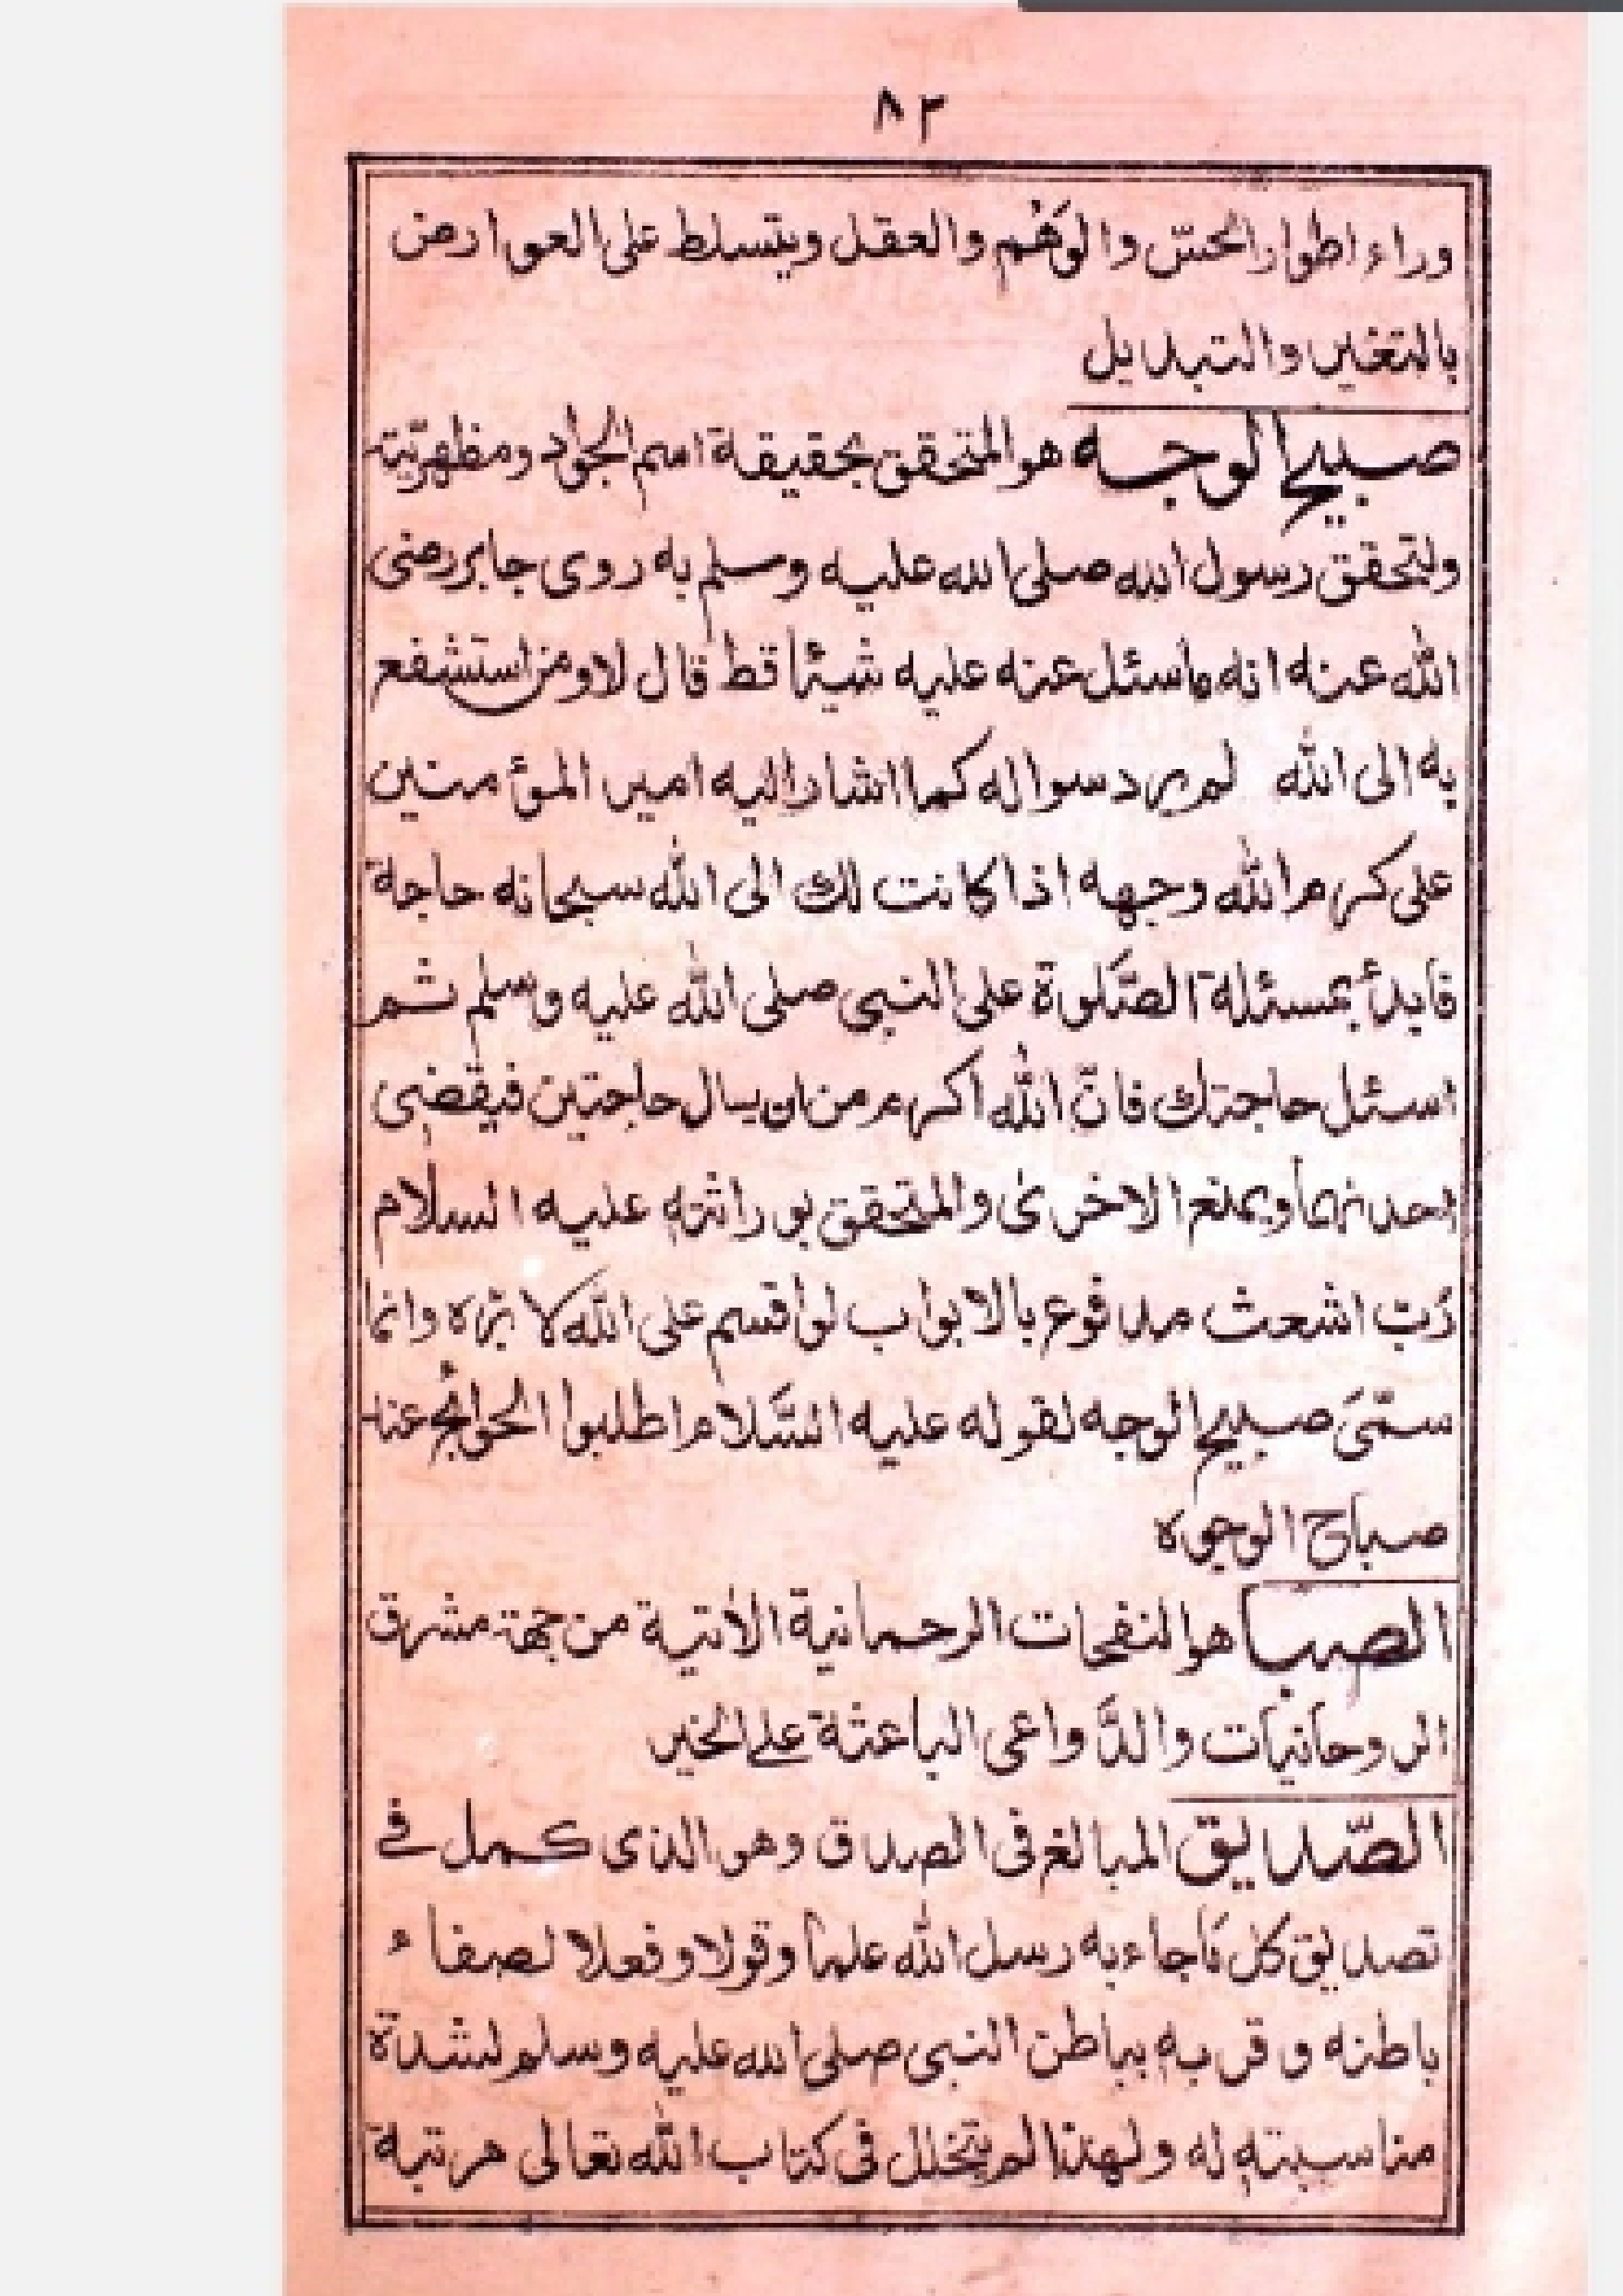 ٨٣
وراء اطوار الحسّ والوَهْم والعقل ويتسلط على العوارض
بالتغير والتبديل
صبيح الوجه هو المتحقق بحقيقة اسم الجواد ومظهريّته
ولتحقق رسول الله صلى الله عليه وسلم به روى جابر رضى
الله عنه انه ما سئل عنه عليه شيئا قط قال لا ومن استشفع
به الى الله لم يرد سواله كما اشار اليه امير المؤمنين
على كرم الله وجهه اذا كانت لك الى الله سبحانه حاجة
فابدأ بمسئلة الصَّلوة على النبي صلى الله عليه وسلم ثم
اسئل حاجتك فانّ الله اكرم من ان يسال حاجتين فيقضى
احدنهما ويمنع الاخرى والمتحقق بوراثته عليه السلام
رُبّ اشعث مدفوع بالابواب لو اقسم على الله لابرّه وانما
سمّىَ صبيح الوجه لقوله عليه السَّلام اطلبوا الحوائج عند
صباح الوجوه
الصبا هو النفحات الرحمانية الأتية من جهة مشرق
الروحانيات والدَّواعى الباعثة على الخير
الصّديق المبالغ فى الصدق وهو الذى كمل فے
تصديق كل مَا جاء به رسل الله علماً وقولا وفعلا لصفاء
باطنه و قربه بباطن النبى صلى الله عليه وسلم لشدة
مناسبته له ولهذا لم يتخلل فى كتاب الله تعالى مرتبة